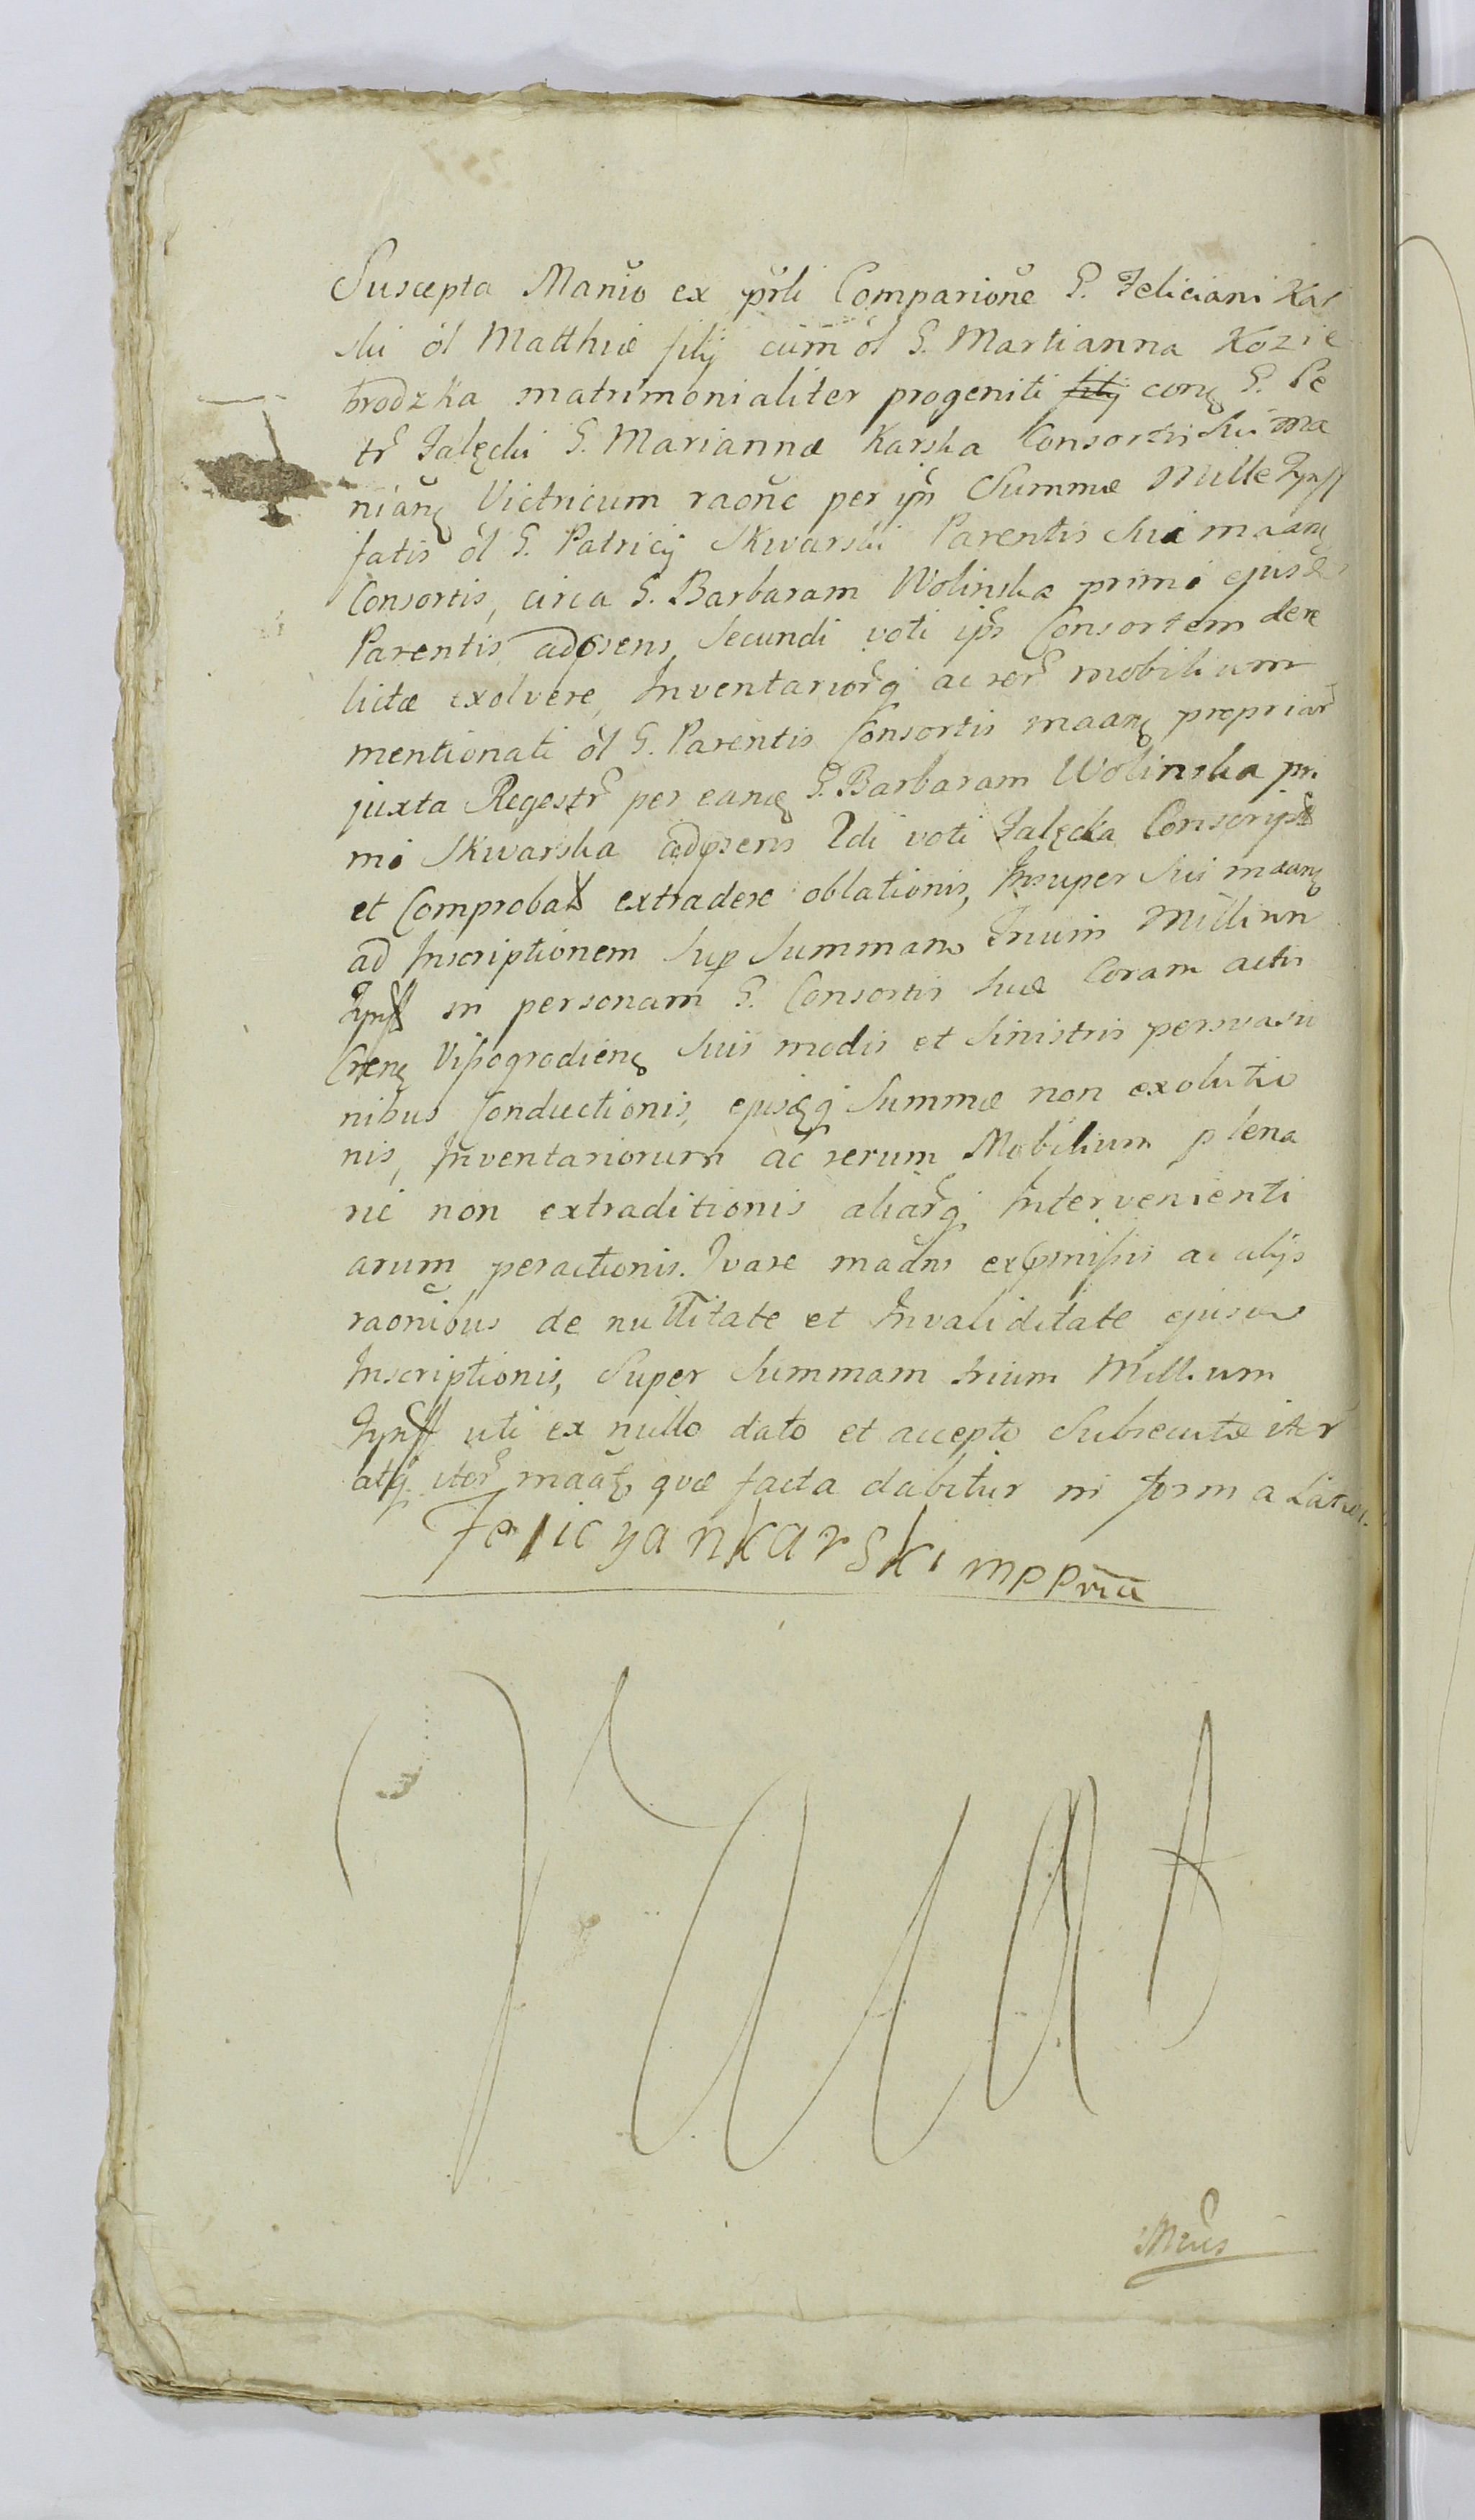 Suscepta Manio ex prli Comparione G. Feliciani Kar
ski ol Matthiæ filij cum ol G. Martianna Kozie
brodzka matrimonialiter progeniti filij conq G. Pe
tr Zalęcki G. Mariannæ Karska Consortis sui ma
nianq Victricum raone per ipm Summæ Mille Tynff
fatis ol G. Patricij Skwarski Parentis sui maanq
Consortis, circa G. Barbaram Wolinska primo ejusd
Parentis adpsens Secundi voti ips Consortem dere
lictæ exolvere, Inventariorq ac rer mobilium
mentionati ol G. Parentis Consortis maanq propriar
juxta Regestr per eanq G. Barbaram Wolinska pri
mo Skwarska adpsens 2di voti Zalęcka Conscript
et Comprobat extradere oblationis, Insuper sui maanq
ad Inscriptionem sup Summam Trium Millium
Tynff in personam G. Consortis suæ Coram actis
Crens Vissogrodiens suis modis et sinistris persvasio
nibus Conductionis, ejusdq Summæ non exolutio
nis, Inventariorum ac rerum Mobilium plena
rie non extraditionis aliarq Intervenienti
arum peractionis. Qvare madns ex pmissis ac alijs
raonibus de nullitate et Invaliditate ejusdm
Inscriptionis, Super Summam trium Millium
Tynff uti ex nullo dato et accepto Subsecutæ iter
atq iter maatq qvæ facta dabitur in forma Latiori.
Felicyan Karski mppria